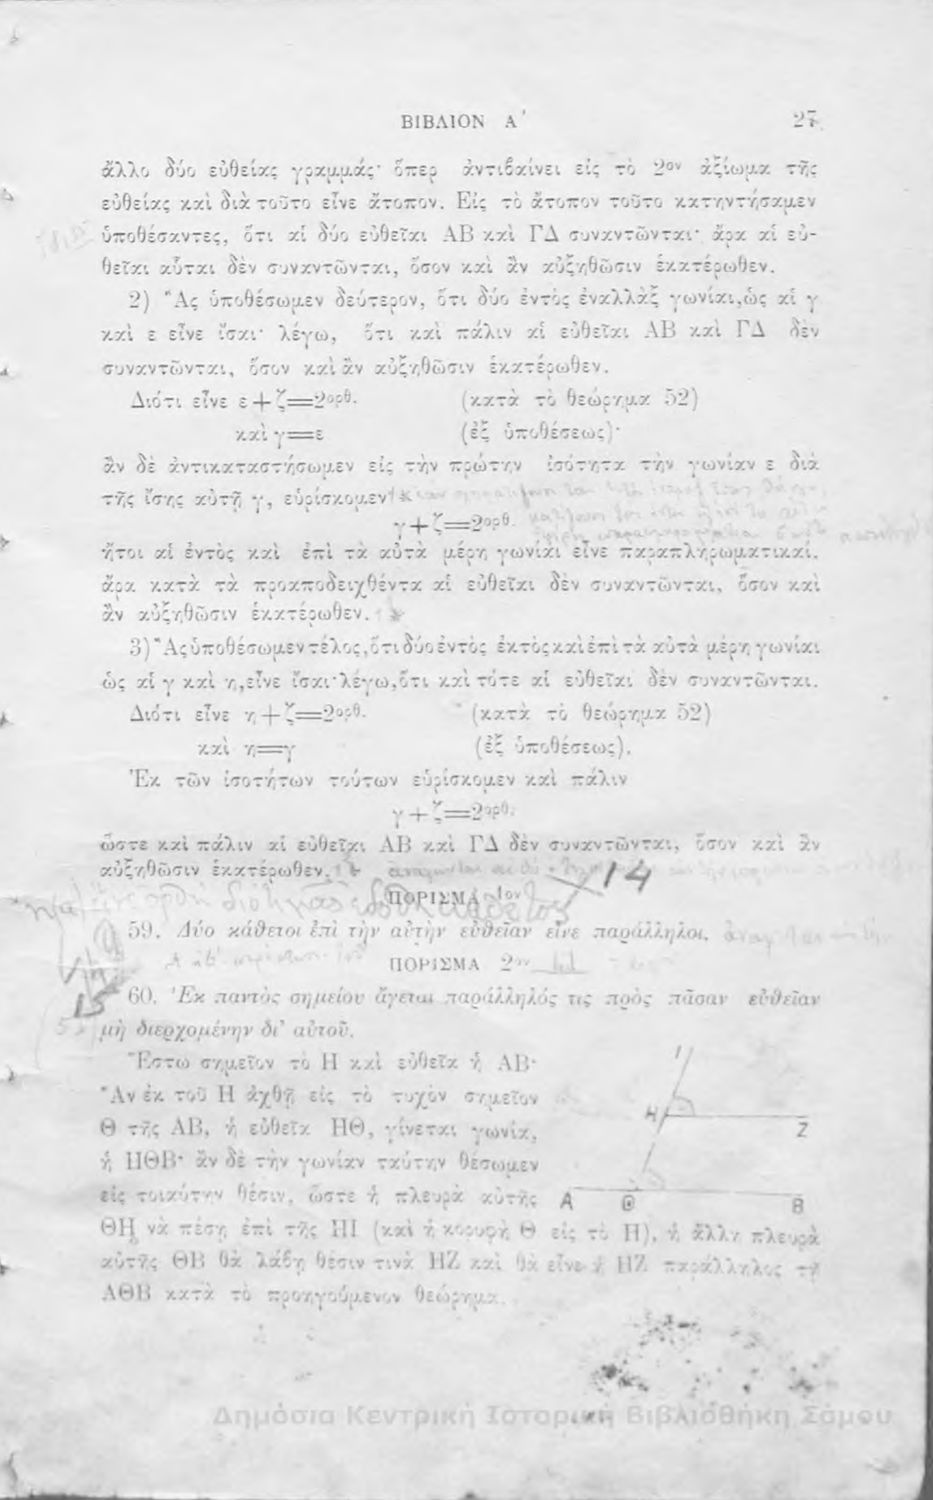 ΒΙΒΛΙΟΝ Α΄ 27
ἄλλο δύο εὐθείας γραμμάς· ὅπερ ἀντιβαίνει εἰς τὸ 2ον ἀξίωμα τῆς
εὐθείας καὶ διὰ τοῦτο εἶνε ἄτοπον. Εἰς τὸ ἄτοπον τοῦτο κατηντήσαμεν
ὑποθέσαντες, ὅτι αἱ δύο εὐθεῖαι ΑΒ καὶ ΓΔ συναντῶνται· ἄρα αἱ εὐ-
θεῖαι αὗται δὲν συναντῶνται, ὅσον καὶ ἂν αὐξηθῶσιν ἑκατέρωθεν.
2) Ἂς ὑποθέσωμεν δεύτερον, ὅτι δύο ἐντὸς ἐναλλὰξ γωνίαι, ὡς αἱ γ
καὶ ε εἶνε ἴσαι· λέγω, ὅτι καὶ πάλιν αἱ εὐθεῖαι ΑΒ καὶ ΓΔ δὲν
συναντῶνται, ὅσον καὶ ἂν αὐξηθῶσιν ἑκατέρωθεν.
Διότι εἶνε ε+ζ=2ορθ. (κατὰ τὸ θεώρημα 52)
καὶ γ=ε (ἐξ ὑποθέσεως)·
ἂν δὲ ἀντικαταστήσωμεν εἰς τὴν πρώτην ἰσότητα τὴν γωνίαν ε διὰ
τῆς ἴσης αὐτῇ γ, εὑρίσκομεν
γ+ζ=2ορθ.
ἤτοι αἱ ἐντὸς καὶ ἐπὶ τὰ αὐτὰ μέρη γωνίαι εἶνε παραπληρωματικαί.
ἄρα κατὰ τὰ προαποδειχθέντα αἱ εὐθεῖαι δὲν συναντῶνται, ὅσον καὶ
ἂν αὐξηθῶσιν ἑκατέρωθεν.
3) Ἂς ὑποθέσωμεν τέλος, ὅτι δύο ἐντὸς ἐκτὸς καὶ ἐπὶ τὰ αὐτὰ μέρη γωνίαι
ὡς αἱ γ καὶ η, εἶνε ἴσαι· λέγω, ὅτι καὶ τότε αἱ εὐθεῖαι δὲν συναντῶνται.
Διότι εἶνε η+ζ=2ορθ. (κατὰ τὸ θεώρημα 52)
καὶ η=γ (ἐξ ὑποθέσεως).
Ἐκ τῶν ἰσοτήτων τούτων εὑρίσκομεν καὶ πάλιν
γ+ζ=2ορθ.
ὥστε καὶ πάλιν αἱ εὐθεῖαι ΑΒ καὶ ΓΔ δὲν συναντῶνται, ὅσον καὶ ἂν
αὐξηθῶσιν ἑκατέρωθεν.
14
ΠΟΡΙΣΜΑ 1ον
59. Δύο κάθετοι ἐπὶ τὴν αὐτὴν εὐθεῖαν εἶνε παράλληλοι.
ΠΟΡΙΣΜΑ 2ον
15
60. Ἐκ παντὸς σημείου ἄγεται παράλληλός τις πρὸς πᾶσαν εὐθεῖαν
μὴ διερχομένην δι' αὐτοῦ.
Ἔστω σημεῖον τὸ Η καὶ εὐθεῖα ἡ ΑΒ·
Ἂν ἐκ τοῦ Η ἀχθῇ εἰς τὸ τυχὸν σημεῖον
Θ τῆς ΑΒ, ἡ εὐθεῖα ΗΘ, γίνεται γωνία,
ἡ ΗΘΒ· ἂν δὲ τὴν γωνίαν ταύτην θέσωμεν
εἰς τοιαύτην θέσιν, ὥστε ἡ πλευρὰ αὐτῆς
ΘΗ νὰ πέσῃ ἐπὶ τῆς ΗΙ (καὶ ἡ κορυφὴ Θ εἰς τὸ Η), ἡ ἄλλη πλευρὰ
αὐτῆς ΘΒ θὰ λάβῃ θέσιν τινὰ ΗΖ καὶ θὰ εἶνε ἡ ΗΖ παράλληλος τῇ
ΑΘΒ κατὰ τὸ προηγούμενον θεώρημα.
Ι
Η Ζ
Α Θ Β
Δημόσια Κεντρική Ιστορική Βιβλιοθήκη Σάμου